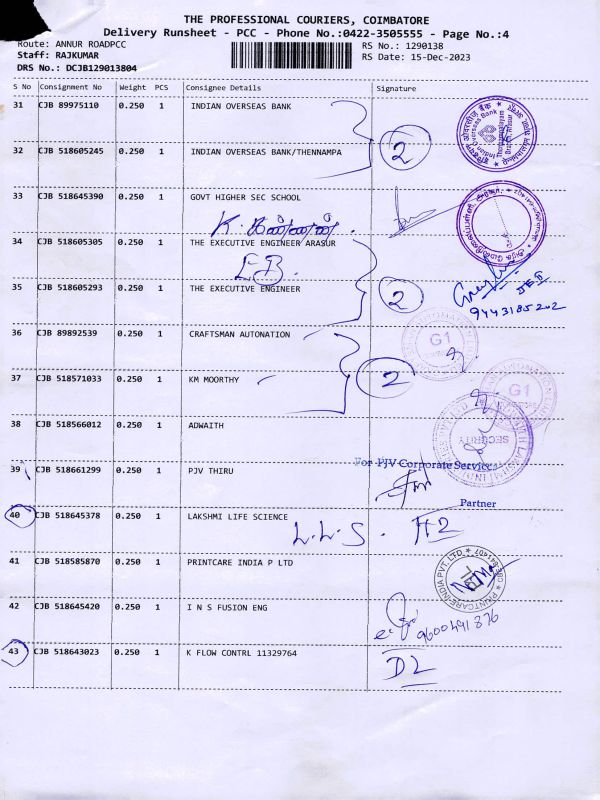 THE PROFESSIONAL COURIERS, COIMBATORE
Delivery Runsheet - PCC - Phone No.:0422-3505555 - Page No.:4
Route: ANNUR ROADPCC
RS No.: 1290138
Staff: RAJKUMAR
RS Date: 15-Dec-2023
DRS No.: DCJB129013804
S No Consignment No Weight PCS Consignee Details Signature
31 CJB 89975110 0.250 1 INDIAN OVERSEAS BANK
32 CJB 518605245 0.250 1 INDIAN OVERSEAS BANK/THENNAMPA
2
33 CJB 518645390 0.250 1 GOVT HIGHER SEC SCHOOL
34 CJB 518605305 0.250 1 THE EXECUTIVE ENGINEER ARASUR
EB
35 CJB 518605293 0.250 1 THE EXECUTIVE ENGINEER
2
9443185202
36 CJB 89892539 0.250 1 CRAFTSMAN AUTONATION
G1
37 CJB 518571033 0.250 1 KM MOORTHY
2
G1
38 CJB 518566012 0.250 1 ADWAITH
SECURITY
39 CJB 518661299 0.250 1 PJV THIRU
For PJV Corporate Services
Partner
40 CJB 518645378 0.250 1 LAKSHMI LIFE SCIENCE
L.L.S. H2
41 CJB 518585870 0.250 1 PRINTCARE INDIA P LTD
PRINTCARE-INDIA PVT. LTD.
42 CJB 518645420 0.250 1 I N S FUSION ENG
9600491876
43 CJB 518643023 0.250 1 K FLOW CONTRL 11329764
D2